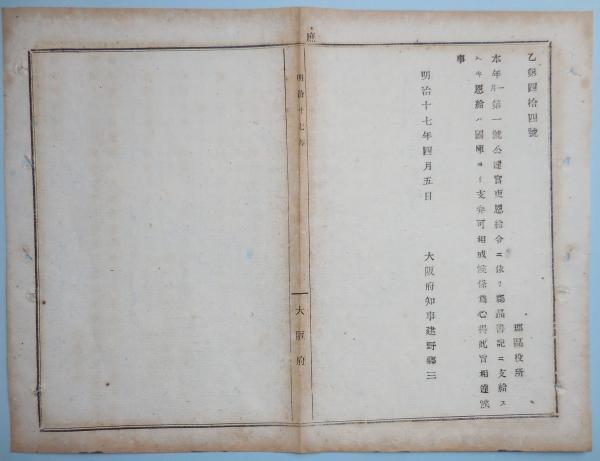 乙第四拾四號
郡區役所
本年一月第一號公達官吏恩給令ニ依リ郡區書記ニ支給ス
ヘキ恩給ハ國庫ヨリ支弁可相成候條爲心得此旨相達候
事
明治十七年四月五日
大阪府知事建野郷三
庶
明治十七年
大阪府